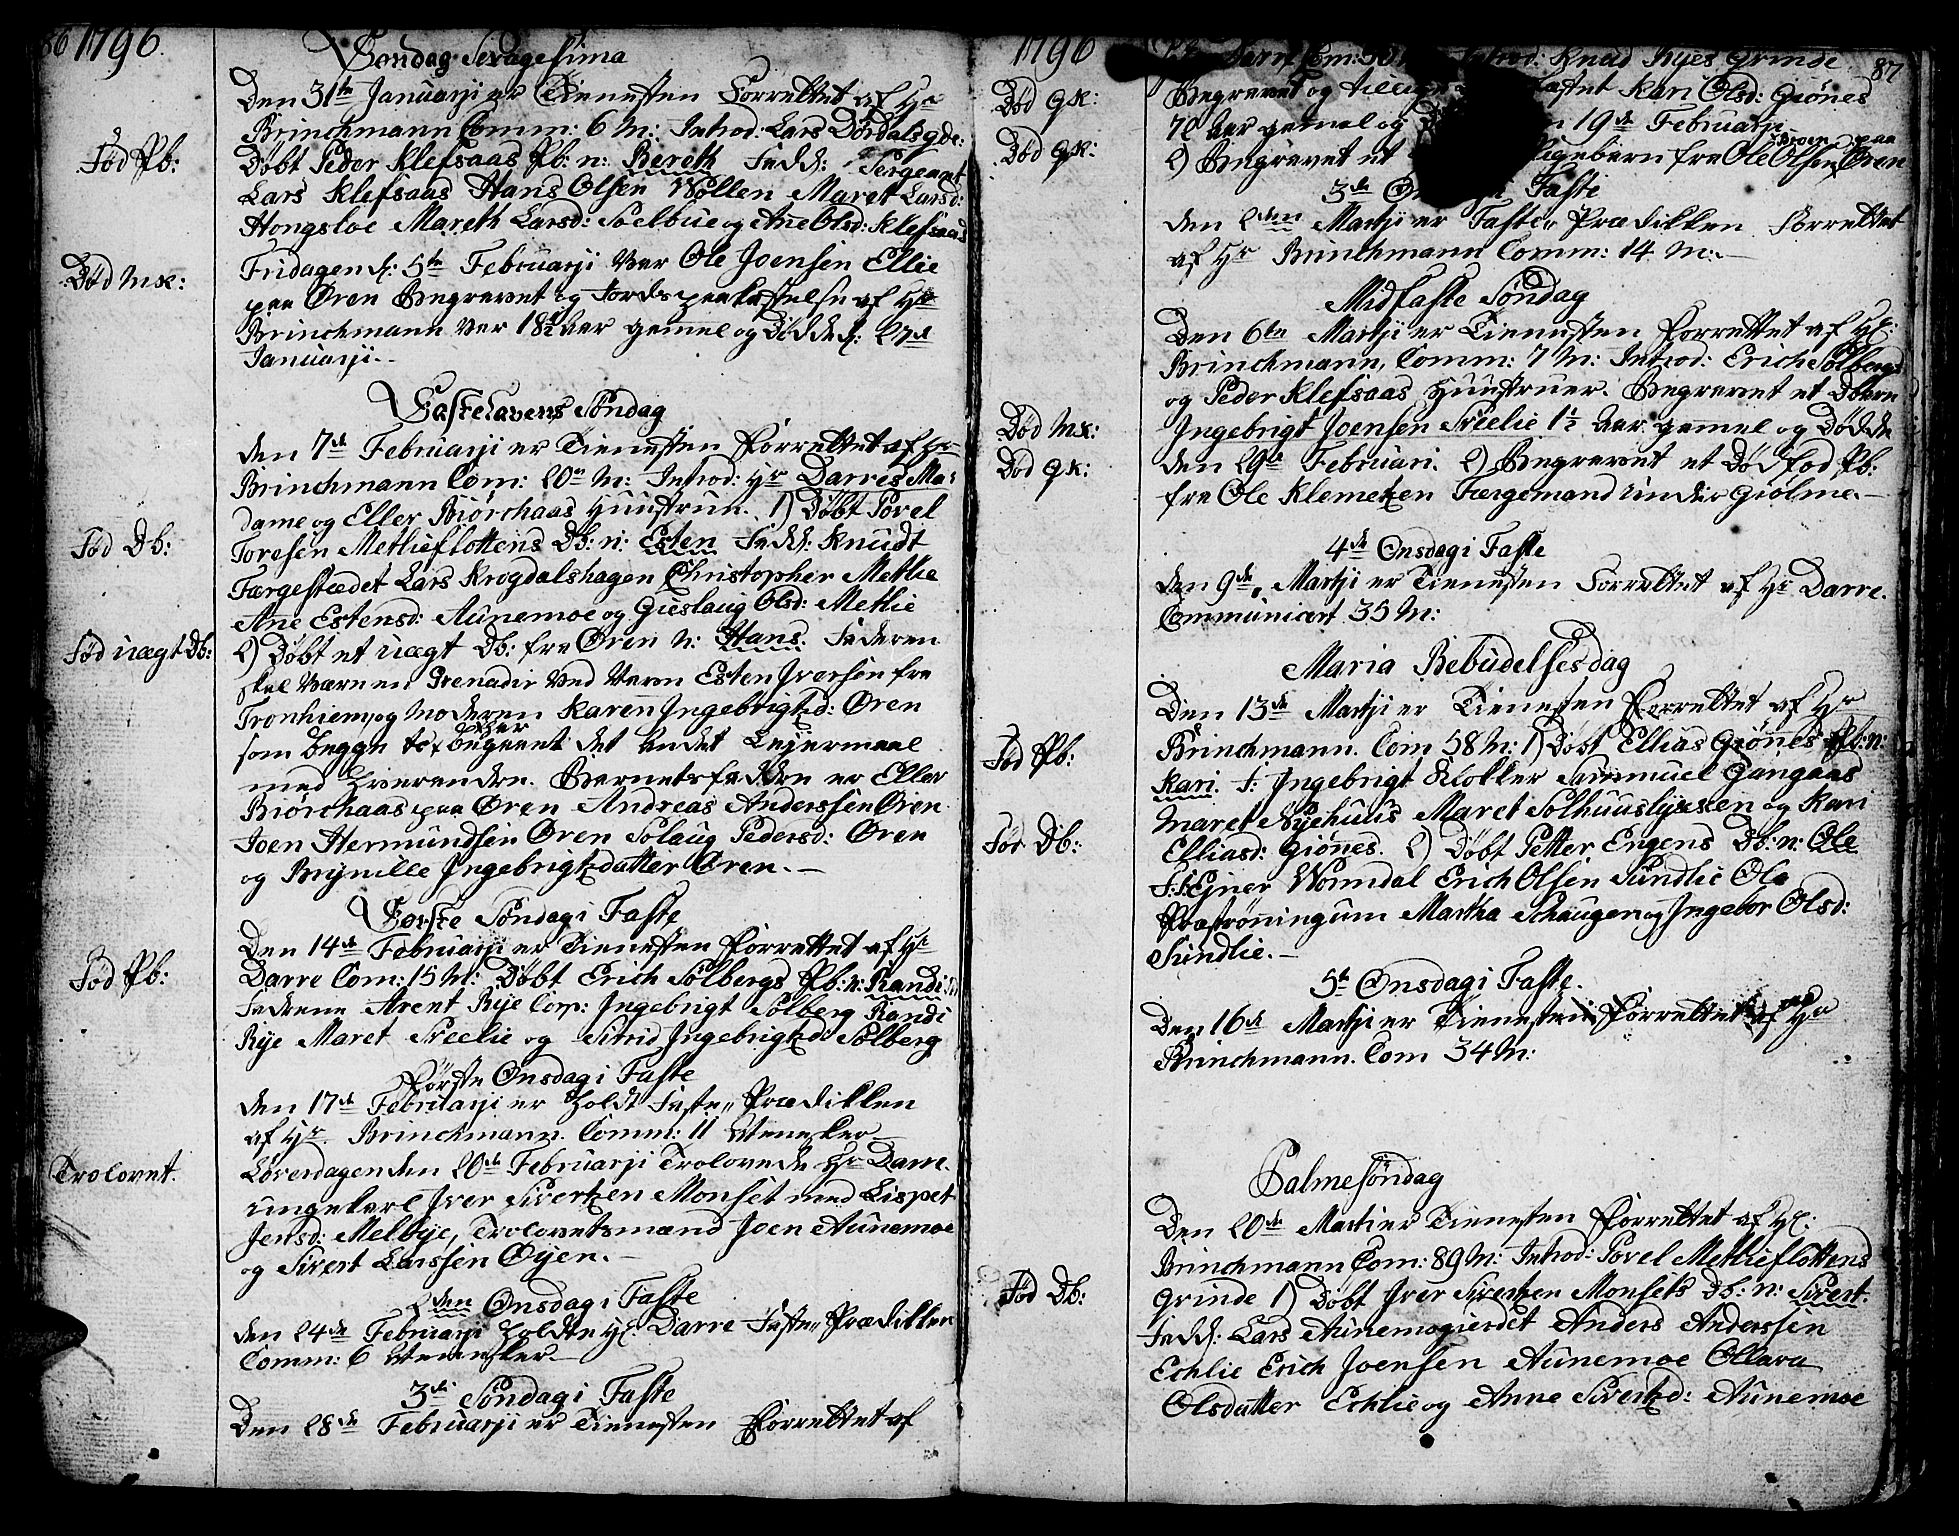 86 1796.
Søndag Sexagesima
Den 31te Januarji er Tienesten Forrettet af Hr
Brinchmann Comm: 6 M: Introd: Lars Dørdalsgde:
Død Pb:
Døbt Peder Klefsaas Pb: n: Bereth Fadd: Sergeant
Lars Klefsaas Hans Olsen Wollen Maret Larsd:
Hongsloe Mareth Larsd: Soelbue og Ane Olsd: Klefsaas
Død Mk:
Fridagen d: 5te Februarji var Ole Joensen Ellie
paa Øren Begravet og Jords paakastelse af Hr
Brinchmann var 18½ Aar gamel og Døde d: 27de
Januarji.
Fastelavens Søndag
Den 7de Februarji er Tienesten Forrettet af Hr
Brinchmann Com: 20 M: Introd: Hr Darres Ma-
dame og Eller Biørchaas Huustrun. 1) Døbt Povel
Fød Db:
Toresen Metlieflottens Db: n: Esten Fadd: Knudt
Færgestædet Lars Krogdalshagen Christopher Metlie
Ane Estensd: Aunemoe og Guslaug Olsd: Metlie
Fød uægt Db:
2) Døbt et uægt Db: fra Øren N: Hans. Faderen
skal være en Grenadir ved Navn Esten Iversøn fra
Tronhiem, og Moderen Karen Ingebrigtzd: Øren
som begge to haver begaaet det andet Lejermaal
med hverandre. Barnets fadder er Eller
Biørchaas paa Øren Andreas Anderssen Øren
Joen Hermundsen Øren Solaug Pedersd: Øren
og Brynille Ingebrigtzdatter Øren.
Første Søndag i Faste
Den 14de Februarji er Tienesten Forrettet af Hr
Fød Pb:
Darre Com: 15 M: Døbt Erich Solbergs Pb: n: Randi
Fadrene Arent Rye Corp: Ingebrigt Solberg Randi
Rye Maret Sneelie og Sitrid Ingebrigtzd: Solberg
Første Onsdag i Faste
Den 17de Februarji er holdt Faste Prædikken
af Hr. Brinchmann. Comm: 11 Mennesker
Trolovet.
Løverdagen den 20de Februarji Trolovede Hr Darre.
ungekarl Iver Sivertzen Monset med Lispet
Jensd: Melbye, Trolovetsmænd Joen Aunemoe
og Sivert Larssen Øyen.
2den Onsdag i Faste
Den 24de Februarji holdte Hr: Darre Faste Prædikken
Comm: 6 Mennesker
3de Søndag i Faste
Den 28de Februarji er Tienesten Forrettet af
1796
87
Darre Com: Introd: Knud Ryes Grinde
Død qk:
Begravet og Kari Olsd: Giønes
Død qk:
70 Aar gamel og 19de Februarji
2) Begravet et fra Ole Olsen Øren
3de Onsdag i Faste
Den 2den Martji er Faste Prædikken Forrettet
af Hr Brinchmann Comm: 14 M:
Midfaste Søndag
Den 6te Martji er Tienesten Forrettet af Hr:
Brinchmann, Comm: 7 M: Introd: Erich Solbergs
og Peder Klefsaas Huustruer. Begravet et Db
Død Mk:
Ingebrigt Joensen Sneelie 1½ Aar gamel og Døde
Død qk:
den 29de Februari. 2) Begravet et Dødfød Pb:
fra Ole Klemetzen Færgemand under Giølme.
4de Onsdag i Faste
Den 9de Martji er Tienesten Forrettet af Hr Darre.
Communicert 35 M:
Maria Bebudelses dag
Den 13de Martji er Tienesten Forrettet af Hr
Fød Pb:
Brinchmann. Com 58 M: 1) Døbt Ellias Giønes Pb: n:
Kari. F: Ingebrigt Klokker Sammuel Gangaas
Maret Nyehuus Maret Solhuuslykken og Kari
Fød Db:
Elliasd: Giønes. 2) Døbt Petter Engens Db: n: Ole
F: Ejner Wormdal Erich Olsen Sundlie Ole
Præstrøningum Martha Schaugen og Ingebor Olsd:
Sundlie.
5te Onsdag i Faste.
Den 16de Martji er Tienesten Forrettet af Hr
Brinchmann. Com 34 M:
Palmesøndag
Den 20de Marti er Tienesten Forrettet af Hr:
Brinchmann Com: 89 M: Introd: Povel Metlieflottens
Fød Db:
Grinde 1) Døbt Iver Sivertzen Monsets Db: n: Sivert.
Fadd: Lars Aunemogierdet Anders Anderssen
Echlie Erich Joensen Aunemoe Ollava
Olsdatter Echlie og Anne Sivertzd: Aunemoe